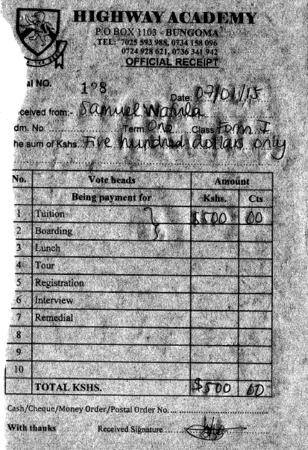 HIGHWAY ACADEMY
P.O BOX 1103 - BUNGOMA
TEL: 7025 593 988, 0734 158 096
0724 928 621, 0736 341 942
OFFICIAL RECEIPT
al NO. 198
Date: 07/01/15
ceived from:- Samuel
dm. No Term One Class Form I
he sum of Kshs. Five hundred dollars only
No. Vote heads Amount
Being payment for Kshs. Cts
1 Tuition $500 00
2 Boarding
3 Lunch
4 Tour
5 Registration
6 Interview
7 Remedial
8
9
10
TOTAL KSHS. $500 00
Cash/Cheque/Money Order/Postal Order No.
With thanks Received Signature